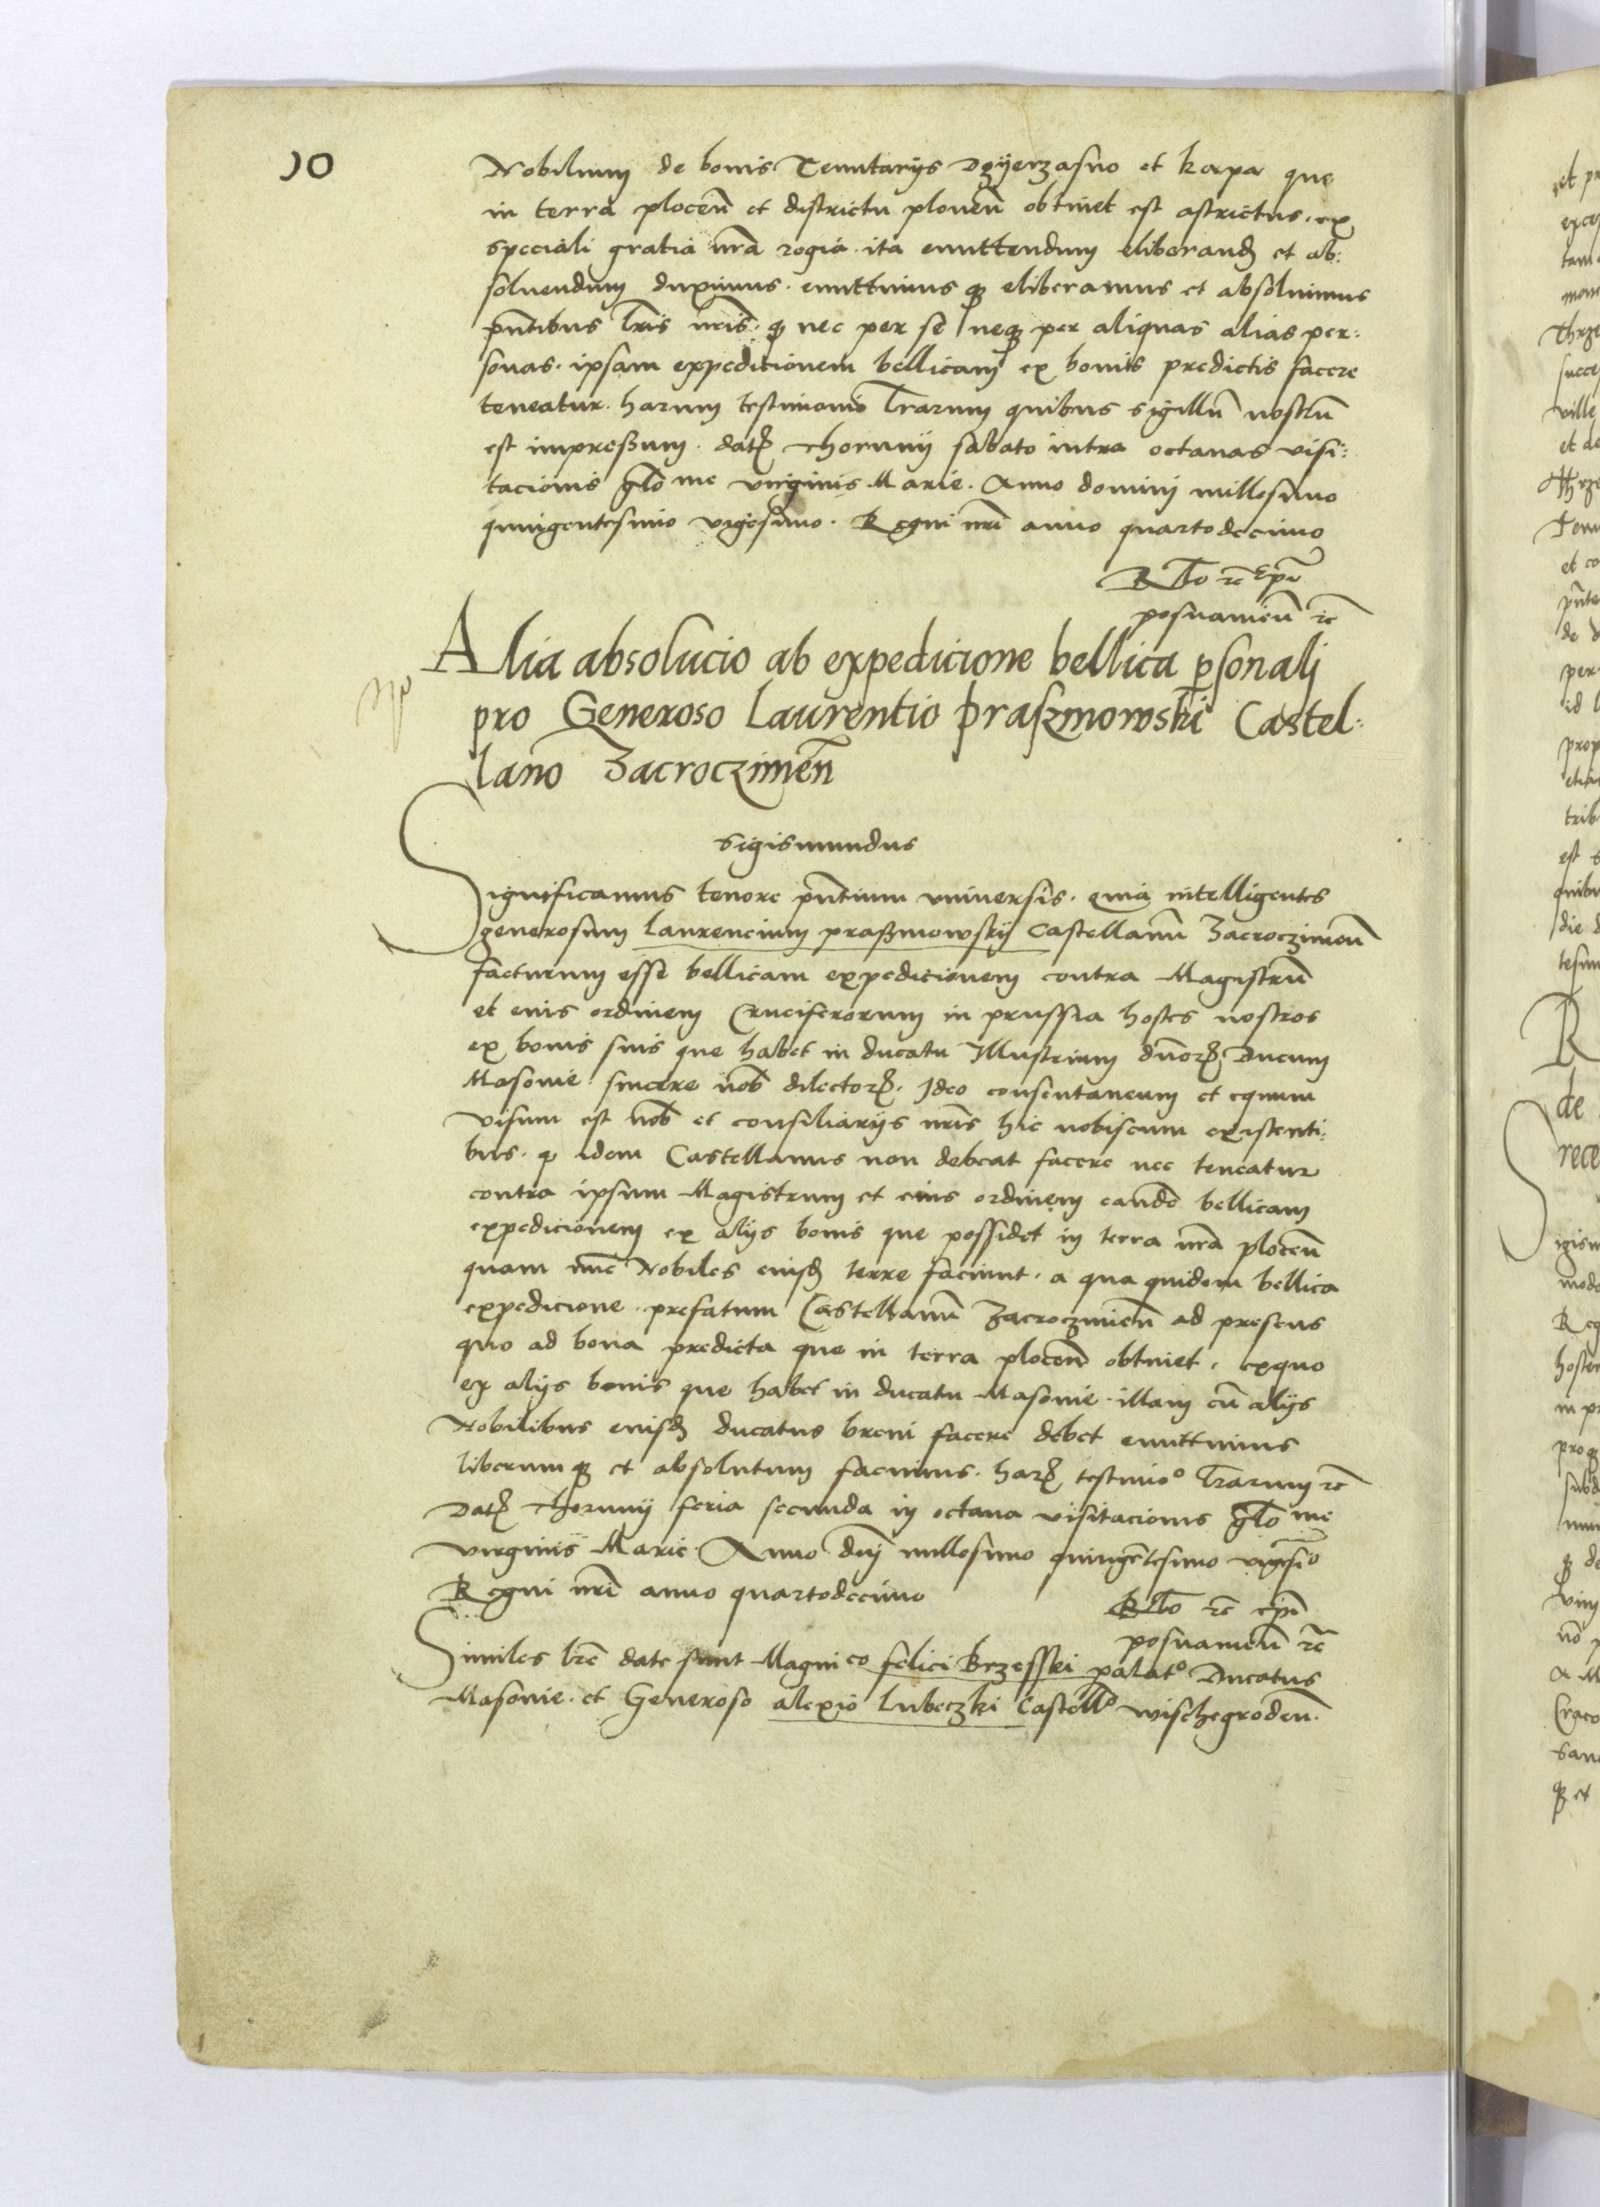 10
Nobilium de bonis Tenutarijs Dzyerzasno et kapa que
in terra plocen̄ et districtu plonen̄ obtinet est astrictus. ex
speciali gratia nr̄a regia. ita emittendum eliberand et ab:
soluendum duximus. emittimus q eliberamus et absoluimus
pn̄tibus lr̄is nr̄is. q nec per se neq per aliquas alias per:
sonas. ipsam expedicionem bellicam ex bonis predictis facere
teneatur. harum testimonio lr̄arum quibus sigillū nostrū
est impressum. dat Thorunij sabato intra octauas visi:
tacionis glōme virginis Marie. Anno dominj millesimo
quingentesimo vigesimo. Regni nr̄i anno quartodecimo
Rlō rc̄ Ep̄i
posnamen̄ rc̄
Alia absolucio ab expedicione bellica psonalj
pro Generoso Laurentio praszmowski Castel:
lano Zacroczimen̄
Sigismundus
Significamus tenore pn̄tium vniuersis. quia intelligentes
generosum laurencium praszmowskij Castellanū Zacroczimen̄
facturum esse bellicam expedicionem contra Magistrū
et eius ordinem Cruciferorum in prussia hostes nostros
ex bonis suis que habet in ducatu Illustrium dn̄or Ducum
Masouie sincere nob̄ dilector. Ideo consentaneum et equum
visum est nob̄ et consiliarijs nr̄is hic nobiscum existenti:
bus. q idem Castellanus non debeat facere nec teneatur
contra ipsum Magistrum et eius ordinem eandē bellicam
expedicionem ex alijs bonis que possidet in terra nr̄a plocen̄
quam nūc Nobiles eiusd terre faciunt. a qua quidem bellica
expedicione. prefatum Castellanū Zacroczimien̄ ad presens
quo ad bona predicta que in terra plocen̄ obtinet. exquo
ex alijs bonis que habet in ducatu Masouie. illam cū alijs
Nobilibus eiusd ducatus breui facere debet emittimus
liberumq et absolutum facimus. har testimo° lr̄arum rc̄
Dat Thorunij feria secunda in octaua visitacionis glōme
virginis Marie. Anno dn̄j millesimo quingētesimo vigesīo
Regni nr̄i anno quartodecimo
Rlō rc̄ ep̄i
posnamen̄ rc̄
Similes lr̄e date sunt Magnico felici Brzesski palat° Ducatus
Masouie. et Generoso alexio Lubeczki Castell° wischegroden̄.